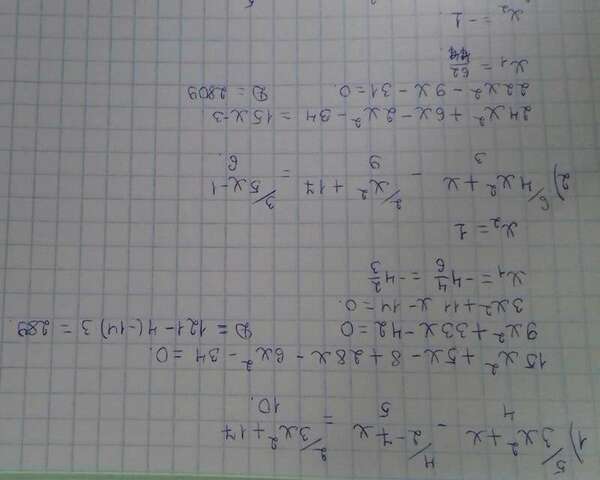 1) ⁵/ (3x²+x)/4 - ⁴/ (2-7x)/5 = ²/ (3x²+17)/10.
15x²+5x-8+28x-6x²-34=0.
9x²+33x-42=0 D=121-4(-14)3=289.
3x²+11x-14=0.
x₁=-4 4/6=-4 2/3
x₂=1
2) ⁶/ (4x²+x)/3 - ²/ (x²+17)/9 = ³/ (5x-1)/6.
24x²+6x-2x²-34=15x-3
22x²-9x-31=0. D=2809
x₁=62/44
x₂=-1.